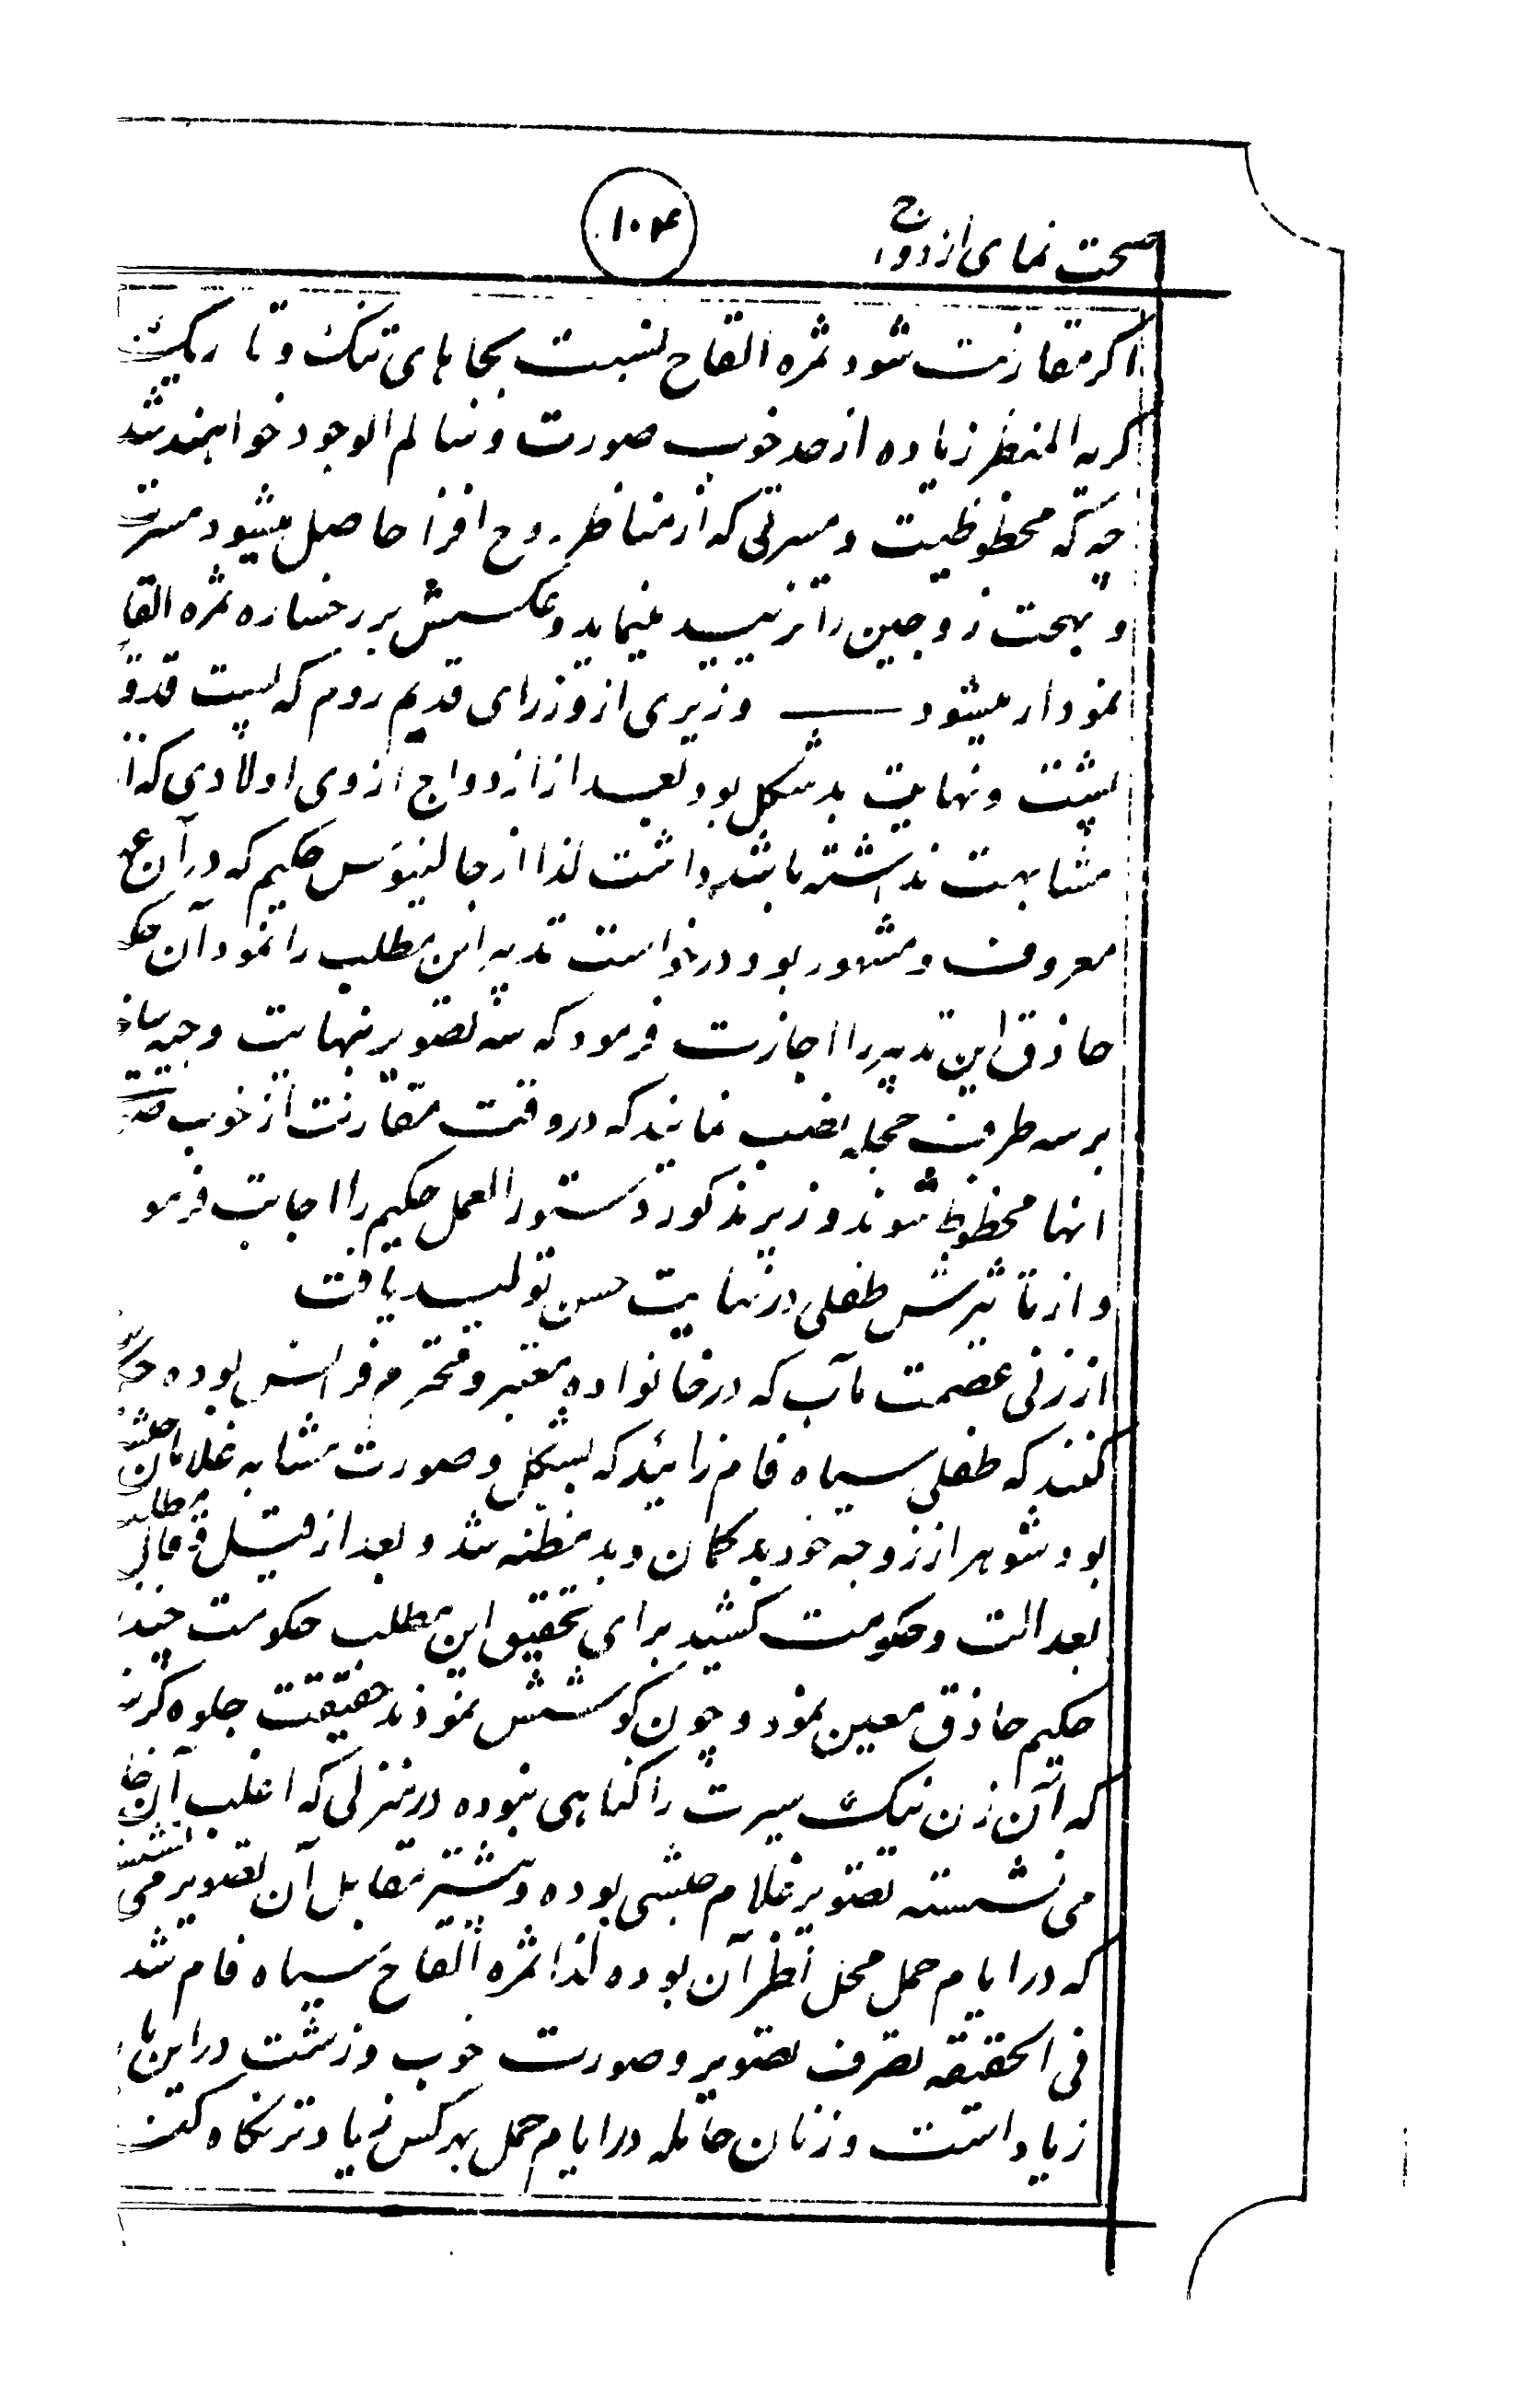 صحت نمای ازدواج
۱۰۴
اکر مقارنت شود ثمره القاح نسبت بجاهای تنک و تاریک
کریه المنظر زیاده از حد خوب صورت و سالم الوجود خواهند شد
چه که محظوظیت و مسرتی که از مناظر روح افزا حاصل میشود مسرت
و بهجت زوجین را تزئید مینماید و عکسش بر رخساره ثمره القا
نمودار میشود — وزیری از وزرای قدیم روم که پست قد و
پشت و نهایت بدشکل بود بعد از ازدواج از وی اولادی که
مشابهت نداشته باشد داشت لذا از جالینوس حکیم که در آن عهد
معروف و مشهور بود درخواست تدبیر این مطلب را نمود آن
حاذق این تدبیر را اجازت فرمود که سه تصویر نهایت وجیه
بر سه طرف حجله نصب نمایند که در وقت مقارنت از خوب
انها محظوظ شوند وزیر مذکور دستور العمل حکیم را اجابت فرمو
و از تاثیرش طفلی در نهایت حسن تولید یافت
از زنی عصمت مآب که در خانواده معتبر و محترم فرانس بوده
کنند که طفلی سیاه فام زائید که بشکل و صورت مشابه غلامان
بود شوهر از زوجه خود بد کمان و بد مظنه شد و بعد از قیل و قال
بعدالت و حکومت کشید برای تحقیق این مطلب حکومت چند
حکیم حاذق معین نمود و چون کوشش نمودند حقیقت جلوه کر
که آن زن نیک سیرت را کناهی نبوده در منزلی که اغلب آن
می نشسته تصویر غلام حبشی بوده و بیشتر مقابل آن تصویر می
که در ایام حمل محل نظر آن بوده لذا ثمره القاح سیاه فام شد
فی الحقیقه تصرف تصویر و صورت خوب و زشت در این
زیاد است و زنان حامله در ایام حمل بهر کس زیادتر نکاه کنند